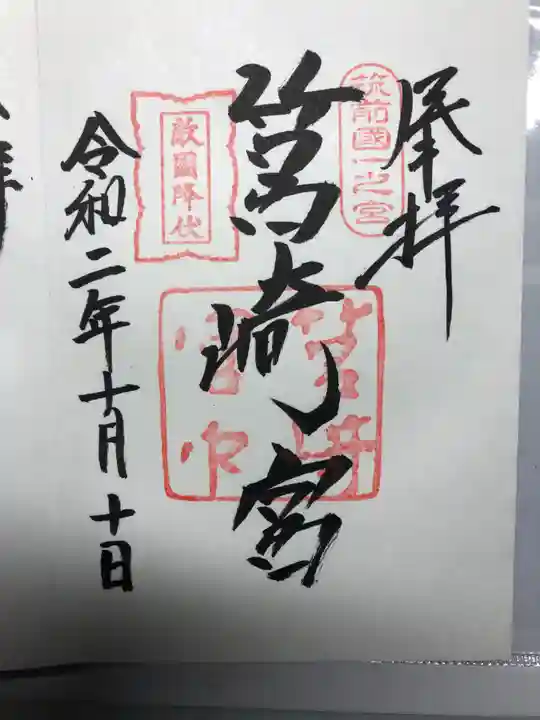 奉拝
筑前國一之宮
筥崎宮
敵國降伏
令和二年十月十日